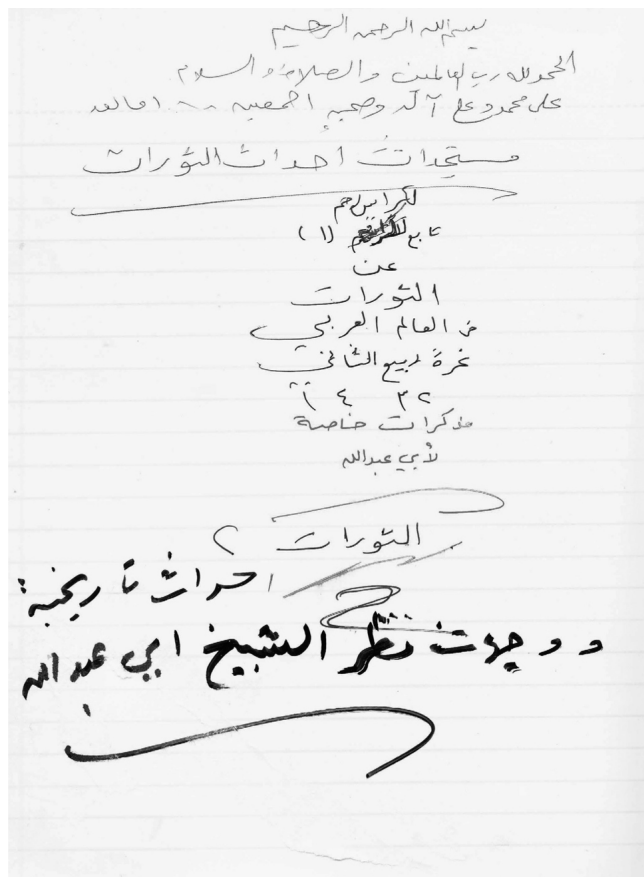 بسم الله الرحمن الرحيم
الحمد لله رب العالمين والصلاة والسلام
على محمد وعلى آله وصحبه اجمعين .. اما بعد
مستجدات أحداث الثورات
تابع (١)
عن
الثورات
في العالم العربي
غرة ربيع الثاني
١٤٣٢
مذكرات خاصة
لأبي عبدالله
الثورات ٢
احداث تاريخية :
ووجهات نظر الشيخ ابي عبد الله